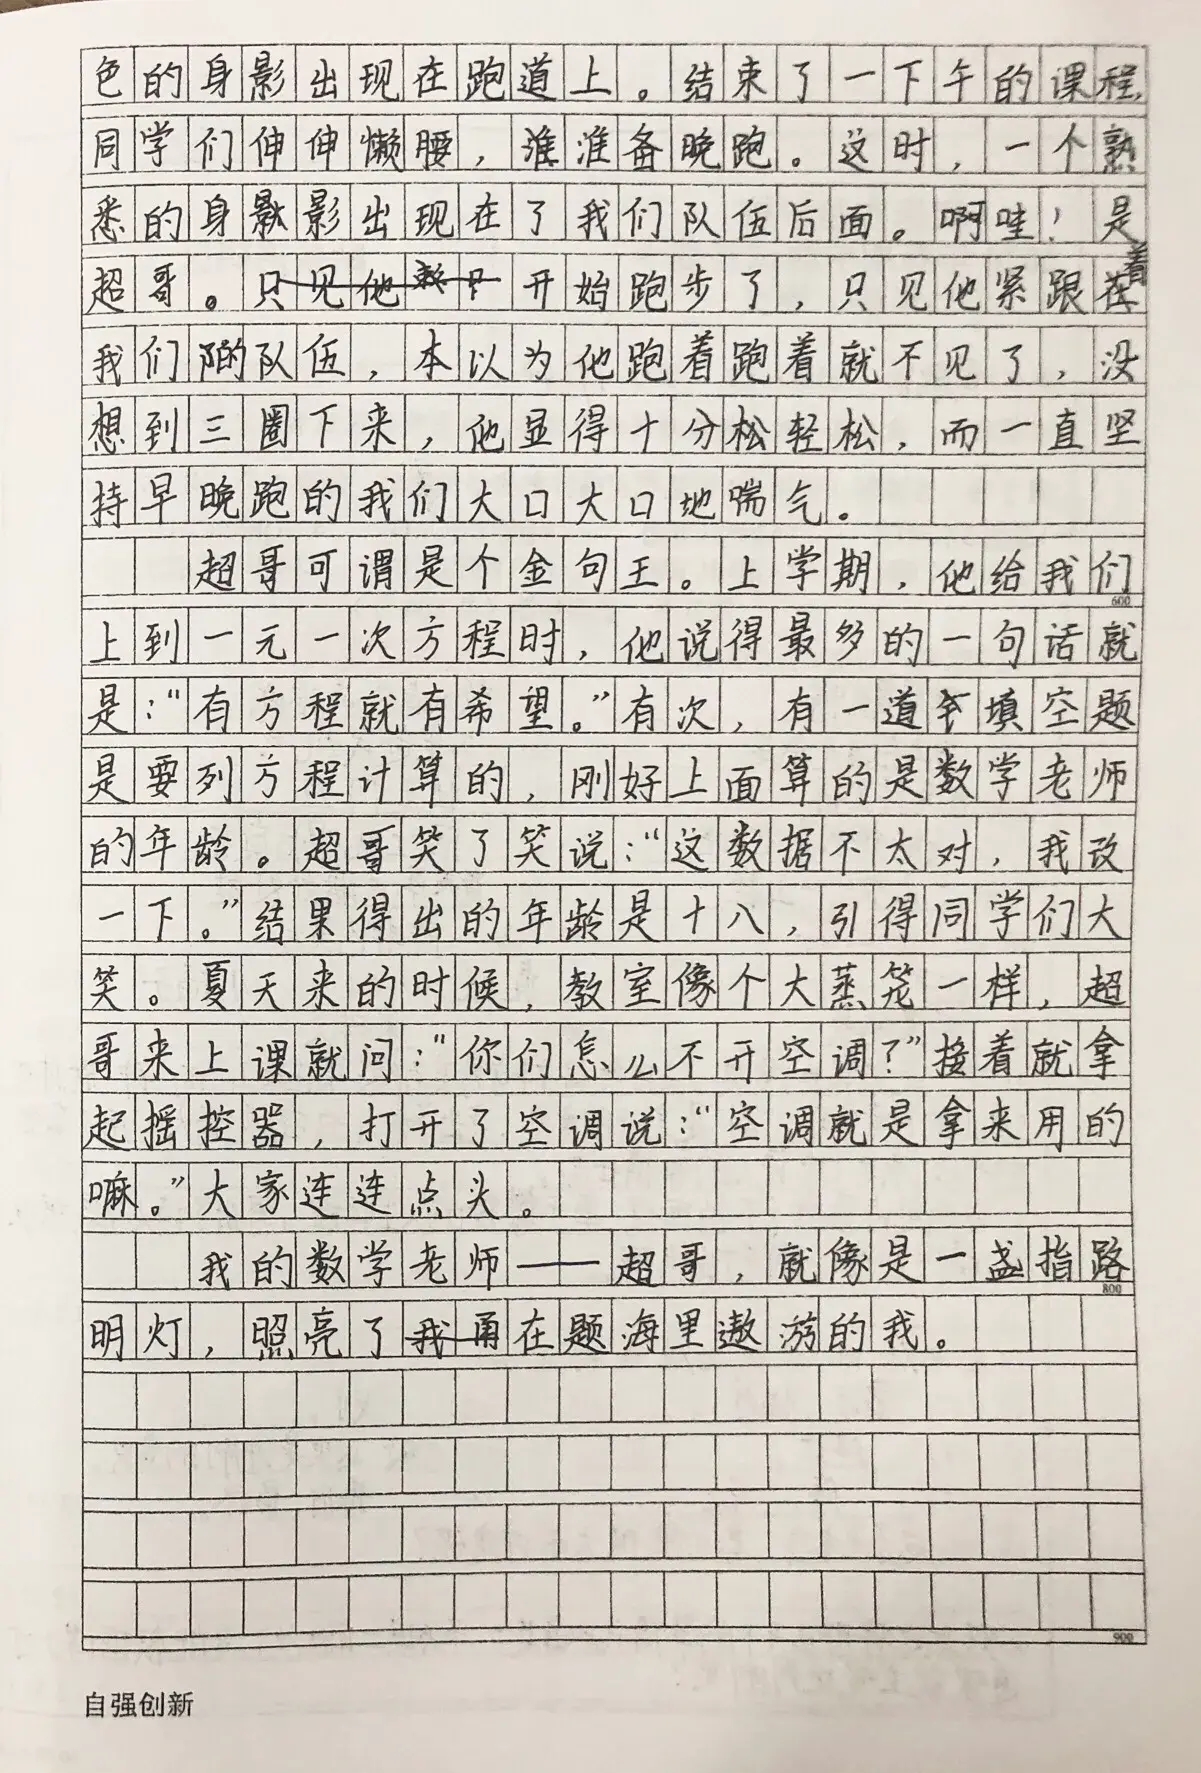 色的身影出现在跑道上。结束了一下午的课程,
同学们伸伸懒腰，准准备晚跑。这时，一个熟
悉的身影影出现在了我们队伍后面。啊哇！是
超哥。只见他 开始跑步了，只见他紧跟着
我们的队伍，本以为他跑着跑着就不见了，没
想到三圈下来，他显得十分松轻松，而一直坚
持早晚跑的我们大口大口地喘气。
超哥可谓是个金句王。上学期，他给我们
600
上到一元一次方程时，他说得最多的一句话就
是：“有方程就有希望。”有次，有一道填空题
是要列方程计算的，刚好上面算的是数学老师
的年龄。超哥笑了笑说：“这数据不太对，我改
一下。”结果得出的年龄是十八，引得同学们大
笑。夏天来的时候，教室像个大蒸笼一样，超
哥来上课就问：“你们怎么不开空调？”接着就拿
起摇控器，打开了空调说：“空调就是拿来用的
嘛。”大家连连点头。
我的数学老师——超哥，就像是一盏指路
800
明灯，照亮了我甬在题海里遨游的我。
900
自强创新